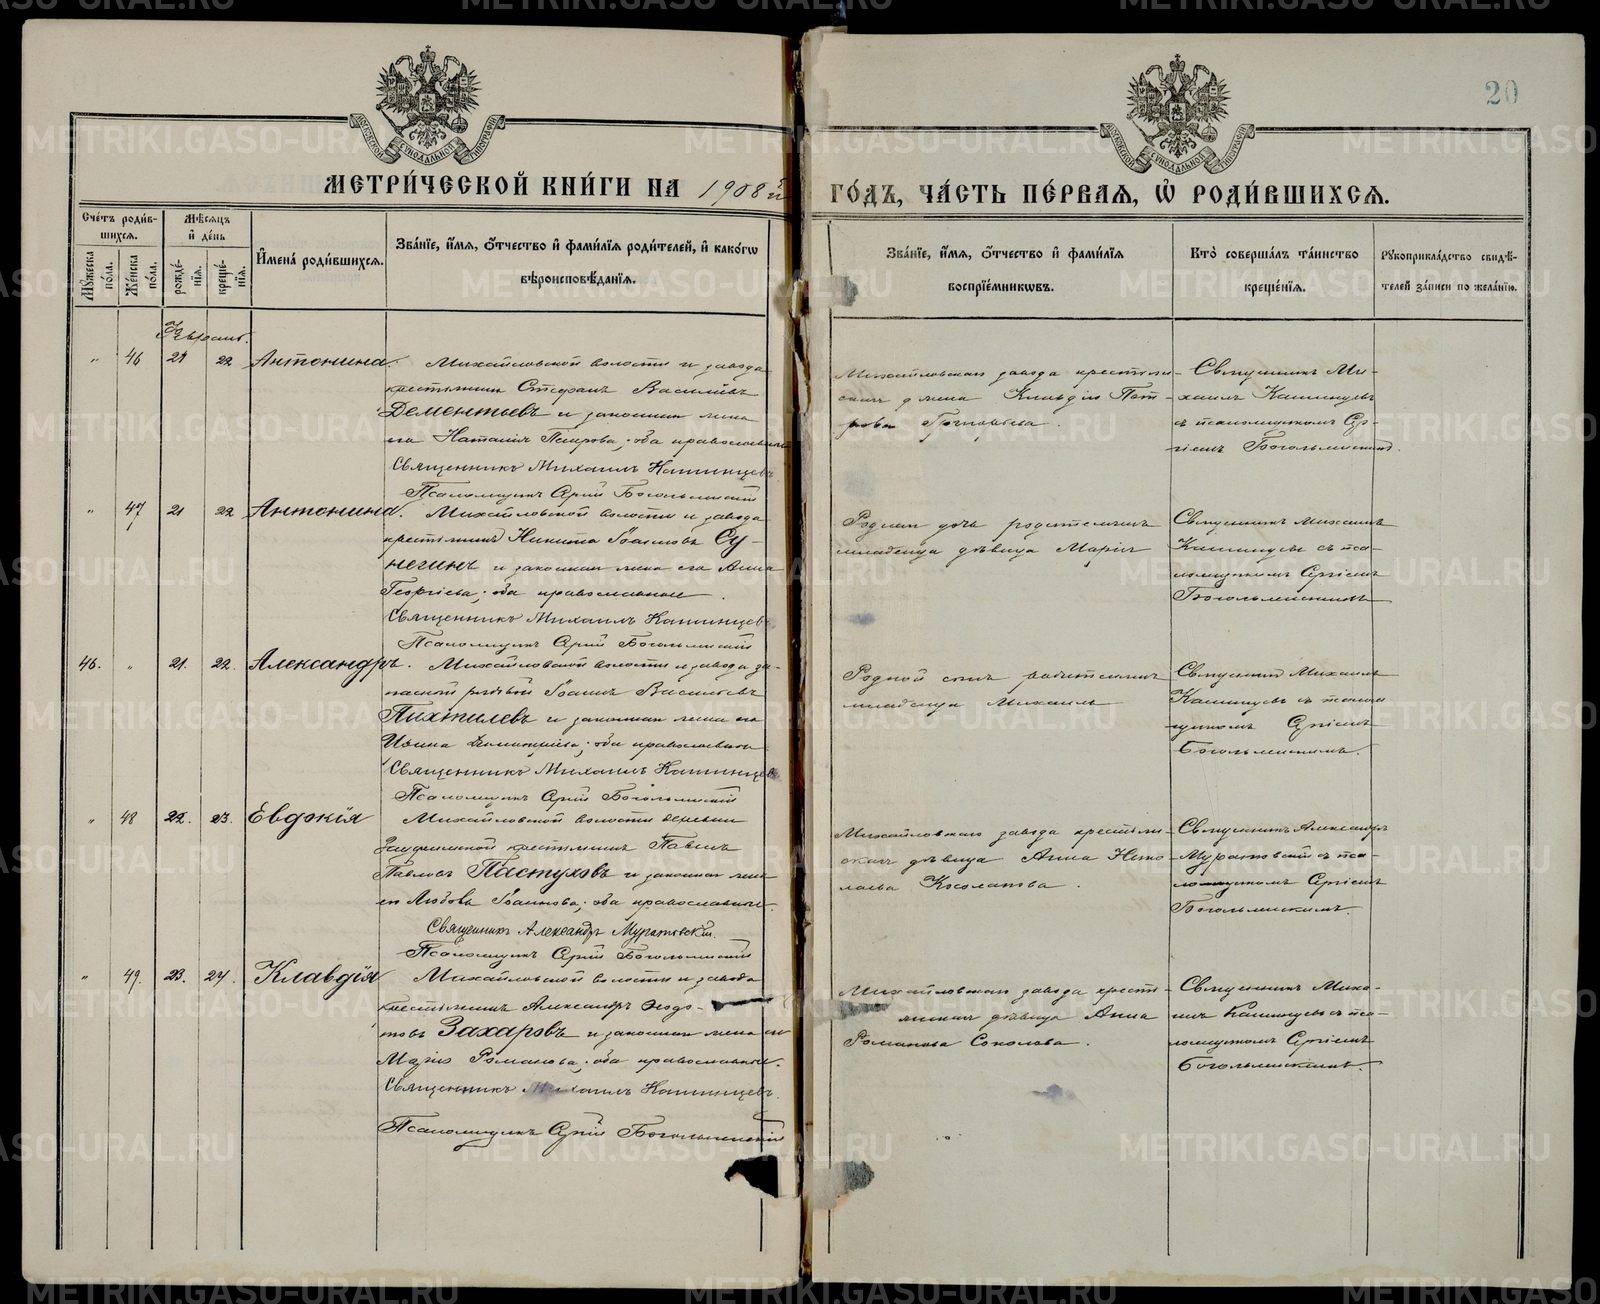 20
МОСКОВСКОЙ СѴНОДАЛЬНОЙ ТИПОГРАФІИ
МОСКОВСКОЙ СѴНОДАЛЬНОЙ ТИПОГРАФІИ
МЕТРИ́ЧЕСКОЙ КНИ́ГИ НА 1908 й ГО́ДЪ, ЧА́СТЬ ПЕ́РВАЯ, Ѽ РОДИ́ВШИХСЯ.
Сче́тъ роди́в-
шихся.
Мѣ́сяцъ
и҆ де́нь
Мꙋ́жеска по́ла.
Же́нска по́ла.
рожде́-нїя.
креще́-нїя.
И҆мена̀ роди́вшихся.
Зва́нїе, и҆́мя, ѻ҆́тчество и҆ фами́лїя роди́телей, и҆ како́гѡ
вѣроисповѣ́данїя.
Зва́нїе, и҆́мя, ѻ҆́тчество и҆ фами́лїя
воспрїе́мникѡвъ.
Кто̀ соверша́лъ та́инство
креще́нїя.
Рꙋкоприкла́дство свидѣ́-
телей за́писи по жела́нїю.
" 46 21 22 Антонина. Михайловской волости и завода
крестьянинъ Стефанъ Васильевъ
Дементьевъ и законная жена
его Наталія Петрова; оба православные
Священникъ Михаилъ Капинцевъ
Псаломщикъ Сергій Богольпскій
Михайловскаго завода крестьян-
ская жена Клавдія Пет-
рова Григорьева.
Священникъ Ми-
хаилъ Капинцевъ
съ псаломщикомъ Сер-
гіемъ
" 47 21 22 Антонина. Михайловской волости и завода
крестьянинъ Никита Іоанновъ Су-
негинъ и законная жена его Анна
Георгіева; оба православные.
Священникъ Михаилъ Капинцевъ
Псаломщикъ Сергій
Родная дочь родителямъ
младенца дѣвица Марія
Священникъ Михаилъ
Капинцевъ съ пса-
ломщикомъ Сергіемъ
46. " 21. 22. Александръ. Михайловской волости и завода за-
пасной рядовой Іоаннъ Васильевъ
Пихтилевъ и законная жена его
Димитріева; оба православные
Священникъ Михаилъ Капинцевъ
Псаломщикъ Сергій
Родной сынъ родителямъ
младенца Михаилъ
Священникъ Михаилъ
Капинцевъ съ псалом-
щикомъ Сергіемъ
" 48 22. 23. Евдокія Михайловской волости деревни
крестьянинъ Павелъ
Павловъ Пастуховъ и законная жена
его Любовь Іоаннова; оба православные.
Священникъ Александръ Муратовскій.
Псаломщикъ Сергій
Михайловскаго завода крестьян-
ская дѣвица Анна Нико-
лаева Косолапова.
Священникъ Александръ
Муратовскій съ пса-
ломщикомъ Сергіемъ
" 49. 23. 24. Клавдія Михайловской волости и завода
крестьянинъ Александръ Ѳедо-
товъ Захаровъ и законная жена его
Марія Романова; оба православные.
Священникъ Михаилъ Капинцевъ.
Псаломщикъ Сергій
Михайловскаго завода кресть-
янская дѣвица Анна
Романова Соколова.
Священникъ Миха-
илъ Капинцевъ съ пса-
ломщикомъ Сергіемъ
METRIKI.GASO-URAL.RU